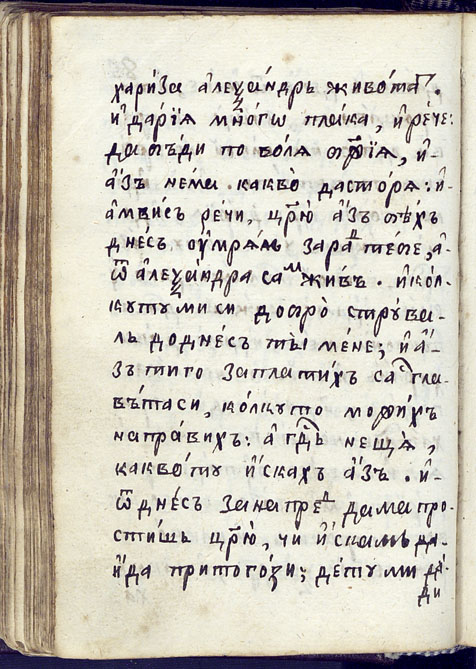 хари́за а҆леѯа́ндръ живо́та г҃.
и҆ да́рїѧ мно́гѡ плака, и҆ ре́че:
да бъ́ди по во́лѧ бж҃їѧ, и҆-
а҆́зъ не́ма какво̀ да сто́рѧ: и҆-
а҆мви́съ ре́чи, цр҃ю а҆́зъ бѣ́хъ
дне́съ ᲂу҆мрѧ́лъ зарад те́бе, а҆
ѿ а҆леѯа́ндра сам жи́въ. и҆ ко́л-
ку ту ми си добро̀ стру́ва-
лъ до дне́съ ты̀ ме́не; и҆ а҆́-
зъ ти го запла́тихъ са гла-
въ́та си, ко́лку то мо́жихъ
напра́вихъ: а҆ гдⷭ҇ь не́ща,
какво́ ту и҆́скахъ а҆́зъ. и҆-
ѿ дне́съ за напред да ма про-
сти́шь цр҃ю, чи и҆́скамъ да-
и҆́да при того́зи; де́ ту ми да́-
ди